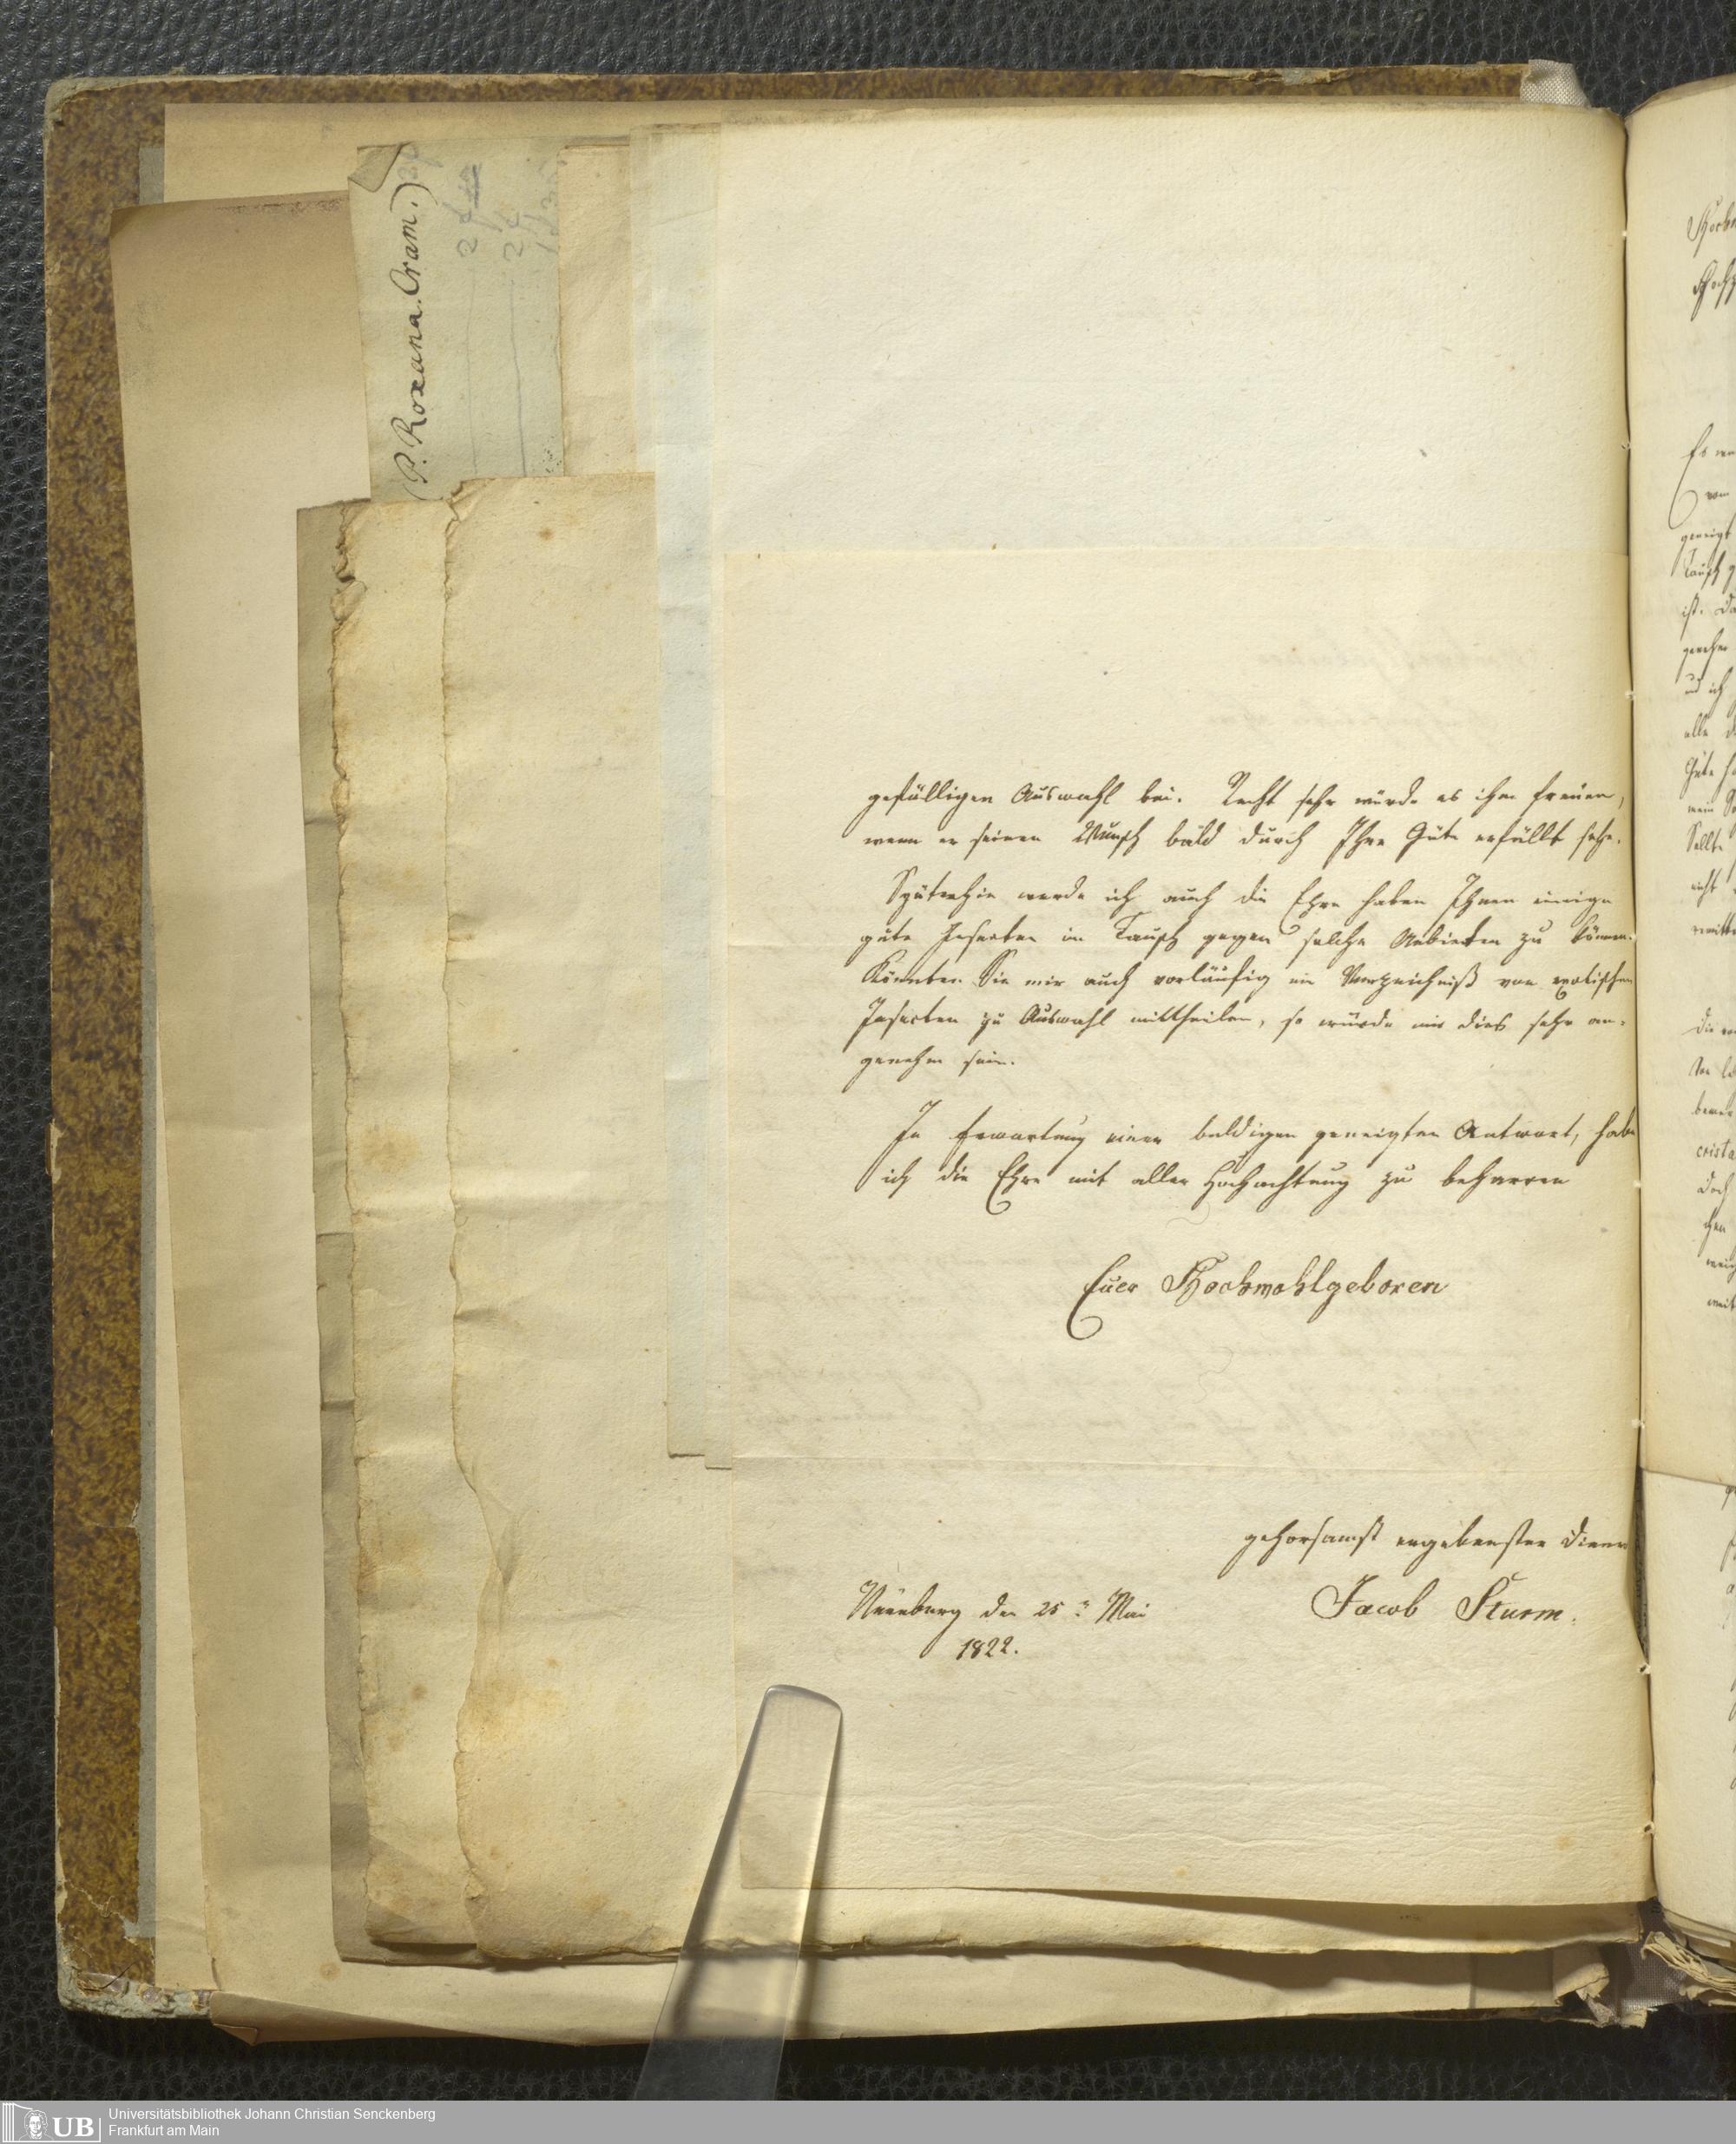 (P. Roxana. Cram.)
gefälligen Auswahl bei. Recht sehr würde es ihn freuen,
wenn er seinen Wunsch bald durch Ihre Güte erfüllt sehe.
Späterhin werde ich auch die Ehre haben Ihnen einige
gute Insecten im Tausch gegen solche Anbieten zu können.
Könnten Sie mir auch vorläufig ein Verzeichniß von exotischen
Insecten zu Auswahl mittheilen, so würde mir dies sehr an-
genehm sein.
In Erwartung einer baldigen geneigten Antwort, habe
ich die Ehre mit aller Hochachtung zu beharren
Euer Hochwohlgeboren
gehorsamst ergebenster Diener
Jacob Sturm.
Nürnberg den 25 Mai
1822.
UB
Universitätsbibliothek Johann Christian Senckenberg
Frankfurt am Main